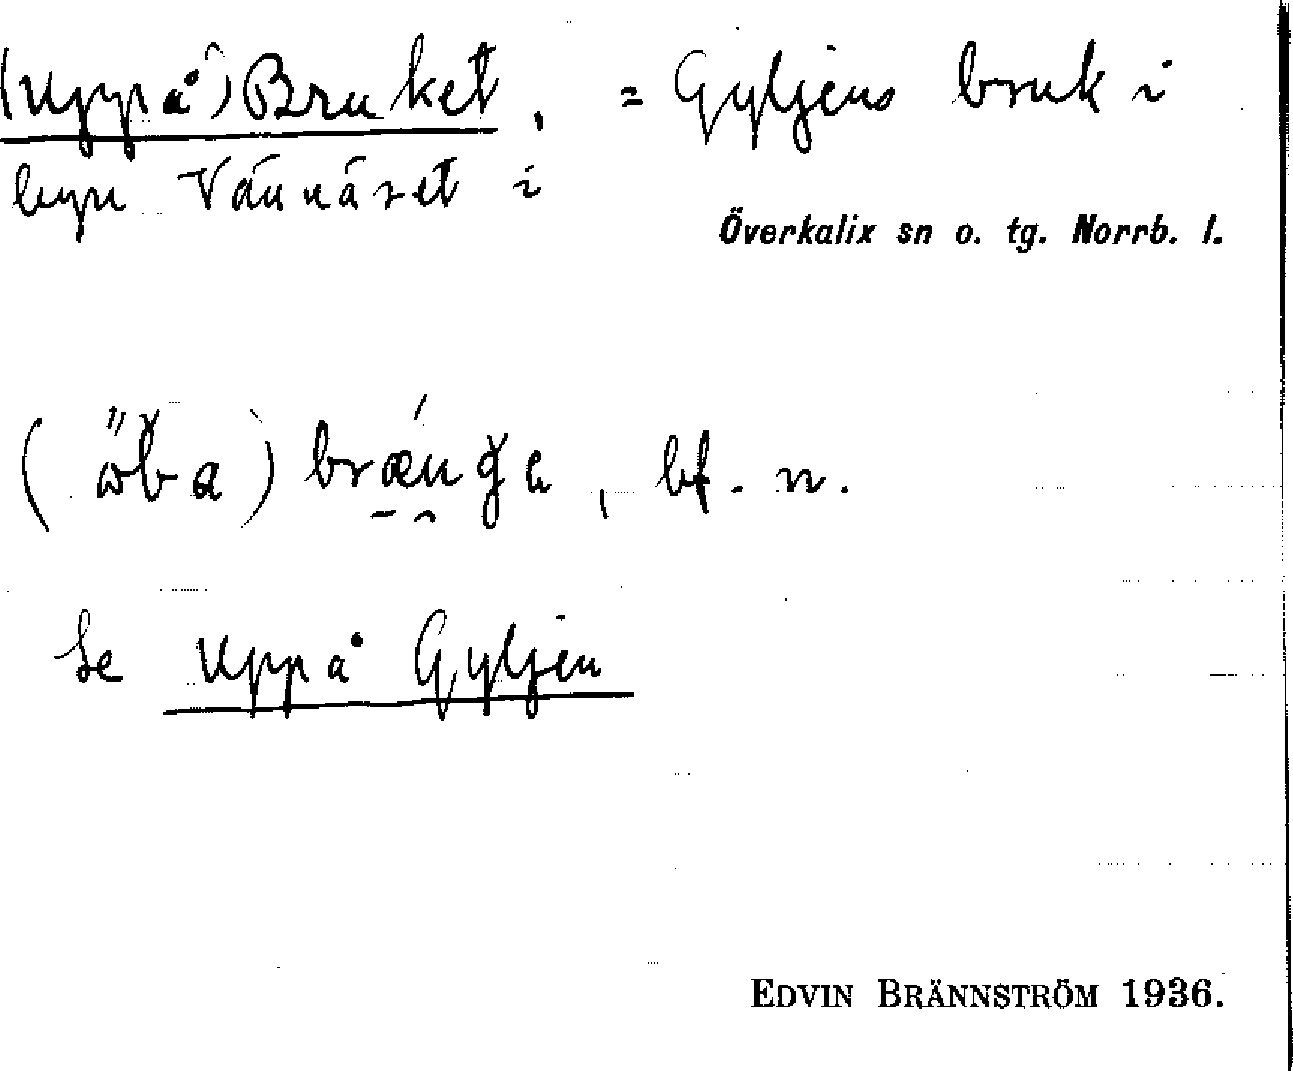 (Uppå) Bruket, = Gyljens bruk i
byn Vännäset i
Överkalix sn o. tg. Norrb. l.
bf. n.
Se Uppå Gyljen
EDVIN BRÄNNSTRÖM 1936.